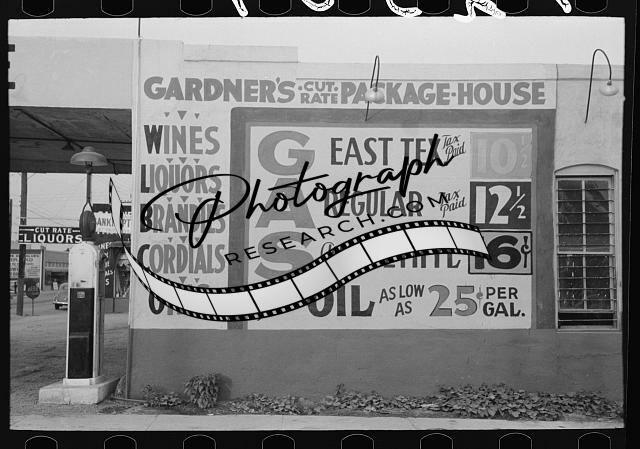 GARDNER'S · CUT-RATE PACKAGE · HOUSE
WINES
LIQUORS
BRANDIES
CORDIALS
GAS
EAST TEX Tax Paid 10½
REGULAR Tax Paid 12½
16¢
OIL AS LOW AS 25¢ PER GAL.
CUT RATE
LIQUORS
Photograph
RESEARCH.COM